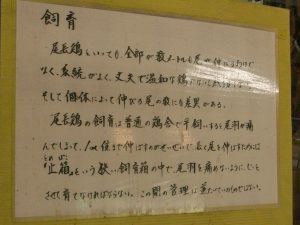 飼育
尾長鶏といっても、全部が数メートルも尾が伸びるわけで
なく、系統がよく、丈夫で温和な鶏に
そして個体によって伸びる尾の数にも差異がある。
尾長鶏の飼育は普通の鶏舎で平飼いすると尾羽が痛
んでしまって、1m位まで伸ばすのがせいぜいで、長く尾を伸ばすためには
「止箱」という狭い飼育箱の中で、尾羽を痛めないように、じっと
させて育てなければならない。この間の管理は